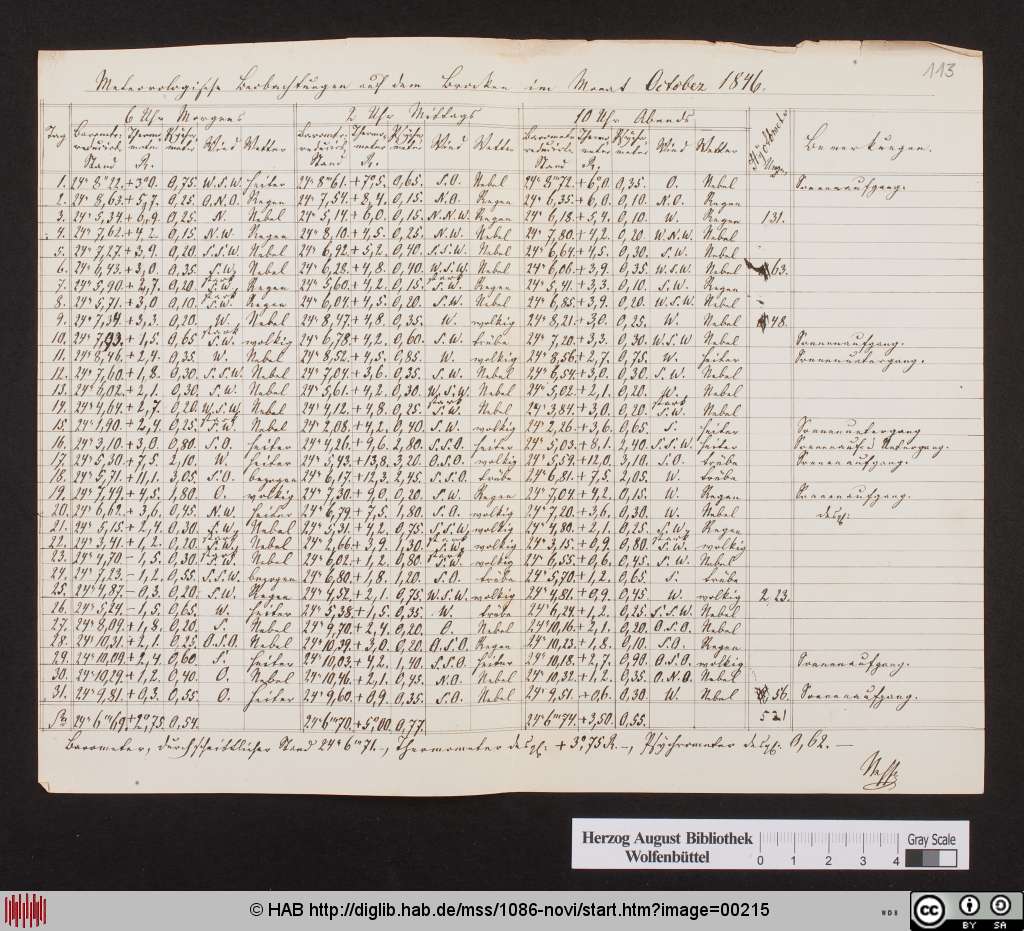 113
Meteorologische Beobachtungen auf dem Brocken im Monat October 1846.
6 Uhr Morgens 2 Uhr Mittags 10 Uhr Abends
Tag Barometr. reducirt. Stand Thermometer R. Psychrometer Wind Wetter Barometr. reducirt. Stand Thermometer R. Psychrometer Wind Wetter Barometr. reducirt. Stand Thermometer R. Psychrometer Wind Wetter Bemerkungen.
1. 24" 8'''22. +3°0. 0,75. W.S.W. heiter 24" 8'''61. +7°,5. 0,65. S.O. Nebel 24" 8'''72. +6°,0 0,35. O. Nebel Sonnenaufgang.
2. 24" 8,63. +5,7. 0,25. O.N.O. Regen 24" 7,54. +8,4. 0,15. N.O. Regen 24" 6,35. +6,0. 0,10. N.O. Regen
3. 24" 5,34. +6,9. 0,25. N. Nebel 24" 5,14. +6,0. 0,15. N.N.W. Regen 24" 6,18. +5,4. 0,10. W. Regen 131.
4. 24" 7,62. +4,2. 0,15. N.W. Regen 24" 8,10. +4,5. 0,25. N.W. Nebel 24" 7,80. +4,2. 0,20. W.N.W. Nebel
5. 24" 7,27. +3,9. 0,20. S.S.W. Nebel 24" 6,92. +5,2. 0,40. S.S.W. Nebel 24" 6,64. +4,5. 0,30. S.W. Nebel
6. 24" 6,43. +3,0. 0,35. S.W. Nebel 24" 6,28. +4,8. 0,40. W.S.W. Nebel 24" 6,06. +3,9. 0,35. W.S.W. Nebel 63.
7. 24" 5,90. +2,7. 0,20. stark S.W. Regen 24" 5,60. +4,2. 0,15. stark S.W. Regen 24" 5,41. +3,3. 0,10. S.W. Regen
8. 24" 5,71. +3,0 0,10. stark S.W. Regen 24" 6,04. +4,5. 0,20. S.W. Nebel 24" 6,85. +3,9. 0,20. W.S.W. Nebel
9. 24" 7,34. +3,3. 0,20. W. Nebel 24" 8,47. +4,8. 0,35. W. wolkig 24" 8,21. +3,0. 0,25. W. Nebel 48.
10. 24" 7,93. +1,5. 0,65. stark S.W. wolkig 24" 6,78. +4,2. 0,60. S.W. trübe 24" 7,20. +3,3. 0,30. W.S.W. Nebel Sonnenaufgang.
11. 24" 8,46. +2,4. 0,35. W. Nebel 24" 8,52. +4,5. 0,85. W. wolkig 24" 8,56. +2,7. 0,75. W. heiter Sonnenuntergang.
12. 24" 7,60. +1,8. 0,30. S.S.W. Nebel 24" 7,04. +3,6. 0,35. S.W. Nebel 24" 6,54. +3,0. 0,30. S.W. Nebel
13. 24" 6,02. +2,1. 0,30. S.W. Nebel 24" 5,61. +4,2. 0,30. W.S.W. Nebel 24" 5,02. +2,1. 0,20. W. Nebel
14. 24" 4,64. +2,7. 0,20. W.S.W. Nebel 24" 4,12. +4,8. 0,25. stark S.W. Nebel 24" 3,84. +3,0. 0,20. stark S.W. Nebel
15. 24" 1,90. +2,4. 0,25. stark S.W. Nebel 24" 2,08. +4,2. 0,40. S.W. wolkig 24" 2,26. +3,6. 0,65. S. heiter Sonnenuntergang
16. 24" 3,10. +3,0. 0,80. S.O. heiter 24" 4,26. +9,6. 2,80. S.S.O. heiter 24" 5,03. +8,1. 2,40. S.S.W. heiter Sonnenauf. u Untergang.
17. 24" 5,30. +7,5. 2,10. W. heiter 24" 5,43. +13,8. 3,20. O.S.O. wolkig 24" 5,59. +12,0. 3,10. S.O. trübe Sonnenaufgang.
18. 24" 5,71. +11,1. 3,05. S.O. bezogen 24" 6,17. +12,3. 2,45. S.S.O. trübe 24" 6,81. +7,5. 2,05. W. trübe
19. 24" 7,49. +4,5. 1,80. O. wolkig 24" 7,30. +9,0. 0,20. S.W. Regen 24" 7,04. +4,2. 0,15. W. Regen Sonnenaufgang.
20. 24" 6,62. +3,6. 0,45. N.W. heiter 24" 6,79. +7,5. 1,80. S.O. wolkig 24" 7,20. +3,6. 0,30. W. Nebel desgl.
21. 24" 5,15. +2,4. 0,30. S.W. Nebel 24" 5,31. +4,2. 0,75. S.S.W. wolkig 24" 4,80. +2,1. 0,25. S.W. Regen
22. 24" 3,41. +1,2. 0,20. stark S.W. Nebel 24" 2,66. +3,9. 1,30. stark S.W. wolkig 24" 3,15. +0,9. 0,80. stark S.W. wolkig
23. 24" 4,70. -1,5. 0,30. stark S.W. Nebel 24" 6,02. +1,2. 0,80. stark S.W. wolkig 24" 6,55. +0,6. 0,45. S.W. Nebel
24. 24" 7,23. -1,2. 0,55. S.S.W. bezogen 24" 6,80. +1,8. 1,20. S.O. trübe 24" 5,70. +1,2. 0,65. S. trübe
25. 24" 4,87. -0,3. 0,20. S.W. Regen 24" 4,52. +2,1. 0,75. W.S.W. wolkig 24" 4,81. +0,9. 0,45. W. wolkig 2 23.
26. 24" 5,24. -1,5. 0,65. W. heiter 24" 5,38. +1,5. 0,35. W. trübe 24" 6,24. +1,2. 0,25. S.S.W. Nebel
27. 24" 8,09. +1,8. 0,20. S. Nebel 24" 9,70. +2,4. 0,20. O. Nebel 24" 10,16. +2,1. 0,20. O.S.O. Nebel
28. 24" 10,31. +2,1. 0,25. O.S.O. Nebel 24" 10,39. +3,0. 0,20. O.S.O. Regen 24" 10,23. +1,8. 0,10. S.O. Regen
29. 24" 10,09. +2,4. 0,60. S. heiter 24" 10,03. +4,2. 1,40. S.S.O. heiter 24" 10,18. +2,7. 0,90. O.S.O. wolkig Sonnenaufgang.
30. 24" 10,29. +1,2. 0,40. O. Nebel 24" 10,46. +2,1. 0,45. N.O. Nebel 24" 10,32. +1,2. 0,35. O.N.O. Nebel
31. 24" 9,81. +0,3. 0,55. O. heiter 24" 9,60. +0,9. 0,35. S.O. Nebel 24" 9,51. +0,6. 0,30. W. Nebel 56. Sonnenaufgang.
24" 6'''69. +2°,75. 0,54. 24" 6'''70. +5°,00. 0,77. 24" 6'''74. +3,50. 0,55. 521
Barometer, durchschnittlicher Stand 24" 6'''71. –, Thermometer desgl. +3°,75 R. –, Psychrometer desgl. 0,62. –
Herzog August Bibliothek
Wolfenbüttel
0 1 2 3 4
Gray Scale
© HAB http://diglib.hab.de/mss/1086-novi/start.htm?image=00215
WDB
cc BY SA